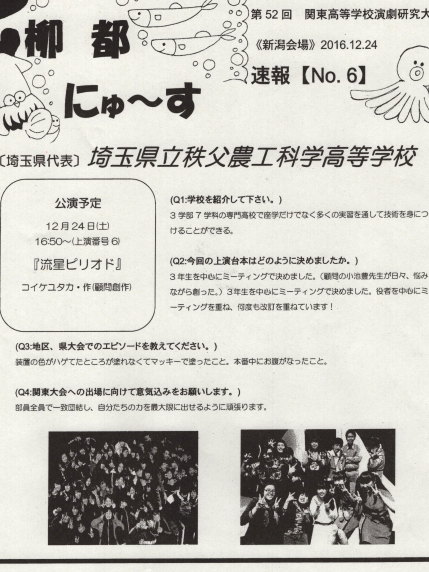 第52回 関東高等学校演劇研究大
柳都
《新潟会場》2016.12.24
にゅ〜す
速報【No.6】
〔埼玉県代表〕埼玉県立秩父農工科学高等学校
公演予定
12月24日(土)
16:50〜(上演番号6)
『流星ピリオド』
コイケユタカ・作(顧問創作)
(Q1:学校を紹介して下さい。)
3学部7学科の専門高校で座学だけでなく多くの実習を通して技術を身につ
けることができる。
(Q2:今回の上演台本はどのように決めましたか。)
3年生を中心にミーティングで決めました。(顧問の小池豊先生が日々、悩み
ながら創った。)3年生を中心にミーティングで決めました。役者を中心にミ
ーティングを重ね、何度も改訂を重ねています!
(Q3:地区、県大会でのエピソードを教えてください。)
装置の色がハゲてたところが塗れなくてマッキーで塗ったこと。本番中にお腹がなったこと。
(Q4:関東大会への出場に向けて意気込みをお願いします。)
部員全員で一致団結し、自分たちの力を最大限に出せるように頑張ります。